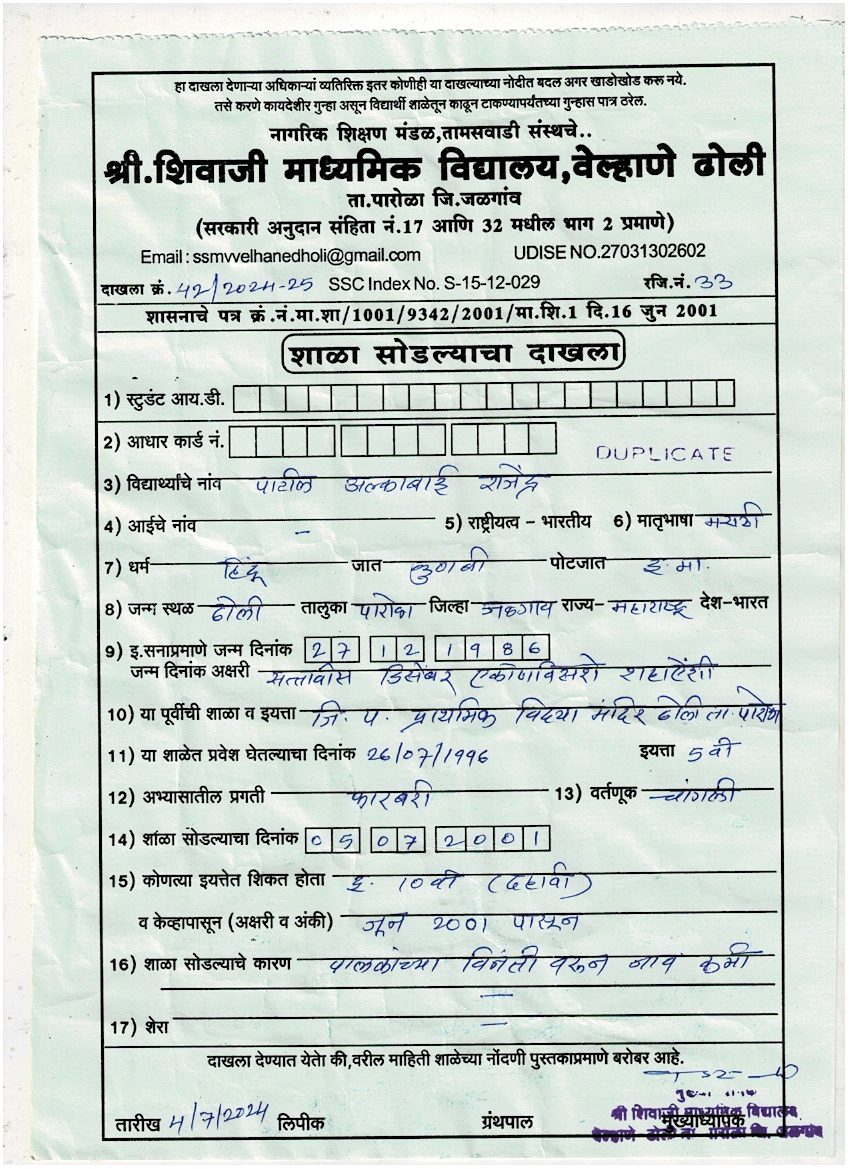 हा दाखला देणाऱ्या अधिकाऱ्यां व्यतिरिक्त इतर कोणीही या दाखल्याच्या नोदीत बदल अगर खाडोखोड करू नये.
तसे करणे कायदेशीर गुन्हा असून विद्यार्थी शाळेतून काढून टाकण्यापर्यंतच्या गुन्हास पात्र ठरेल.
नागरिक शिक्षण मंडळ,तामसवाडी संस्थचे..
श्री.शिवाजी माध्यमिक विद्यालय,वेल्हाणे ढोली
ता.पारोळा जि.जळगांव
(सरकारी अनुदान संहिता नं.17 आणि 32 मधील भाग 2 प्रमाणे)
Email : ssmvvelhanedholi@gmail.com UDISE NO.27031302602
दाखला क्रं. 42/2024-25 SSC Index No. S-15-12-029 रजि.नं. 33
शासनाचे पत्र क्रं.नं.मा.शा/1001/9342/2001/मा.शि.1 दि.16 जुन 2001
शाळा सोडल्याचा दाखला
1) स्टुडंट आय.डी.
2) आधार कार्ड नं. DUPLICATE
3) विद्यार्थ्यांचे नांव पाटील अल्काबाई राजेंद्र
4) आईचे नांव - 5) राष्ट्रीयत्व - भारतीय 6) मातृभाषा मराठी
7) धर्म हिंदू जात कुणबी पोटजात इ.मा.
8) जन्म स्थळ ढोली तालुका पारोळा जिल्हा जळगाव राज्य- महाराष्ट्र देश-भारत
9) इ.सनाप्रमाणे जन्म दिनांक 27 12 1986
जन्म दिनांक अक्षरी सत्तावीस डिसेंबर एकोणविसशे शहाऐंशी
10) या पूर्वीची शाळा व इयत्ता जि. प. प्राथमिक विद्या मंदिर ढोली ता. पारोळा
11) या शाळेत प्रवेश घेतल्याचा दिनांक 26/07/1996 इयत्ता 5 वी
12) अभ्यासातील प्रगती कारबरी 13) वर्तणूक चांगली
14) शांळा सोडल्याचा दिनांक 05 07 2001
15) कोणत्या इयत्तेत शिकत होता इ. 10 वी (दहावी)
व केव्हापासून (अक्षरी व अंकी) जून 2001 पासून
16) शाळा सोडल्याचे कारण पालकांच्या विनंती वरून नाव कमी
-
17) शेरा -
दाखला देण्यात येतो की,वरील माहिती शाळेच्या नोंदणी पुस्तकाप्रमाणे बरोबर आहे.
तारीख 4/7/2024 लिपीक ग्रंथपाल मुख्याध्यापक
श्री शिवाजी माध्यमिक विद्यालय
वेल्हाणे ढोली ता. पारोळा जि. जळगांव